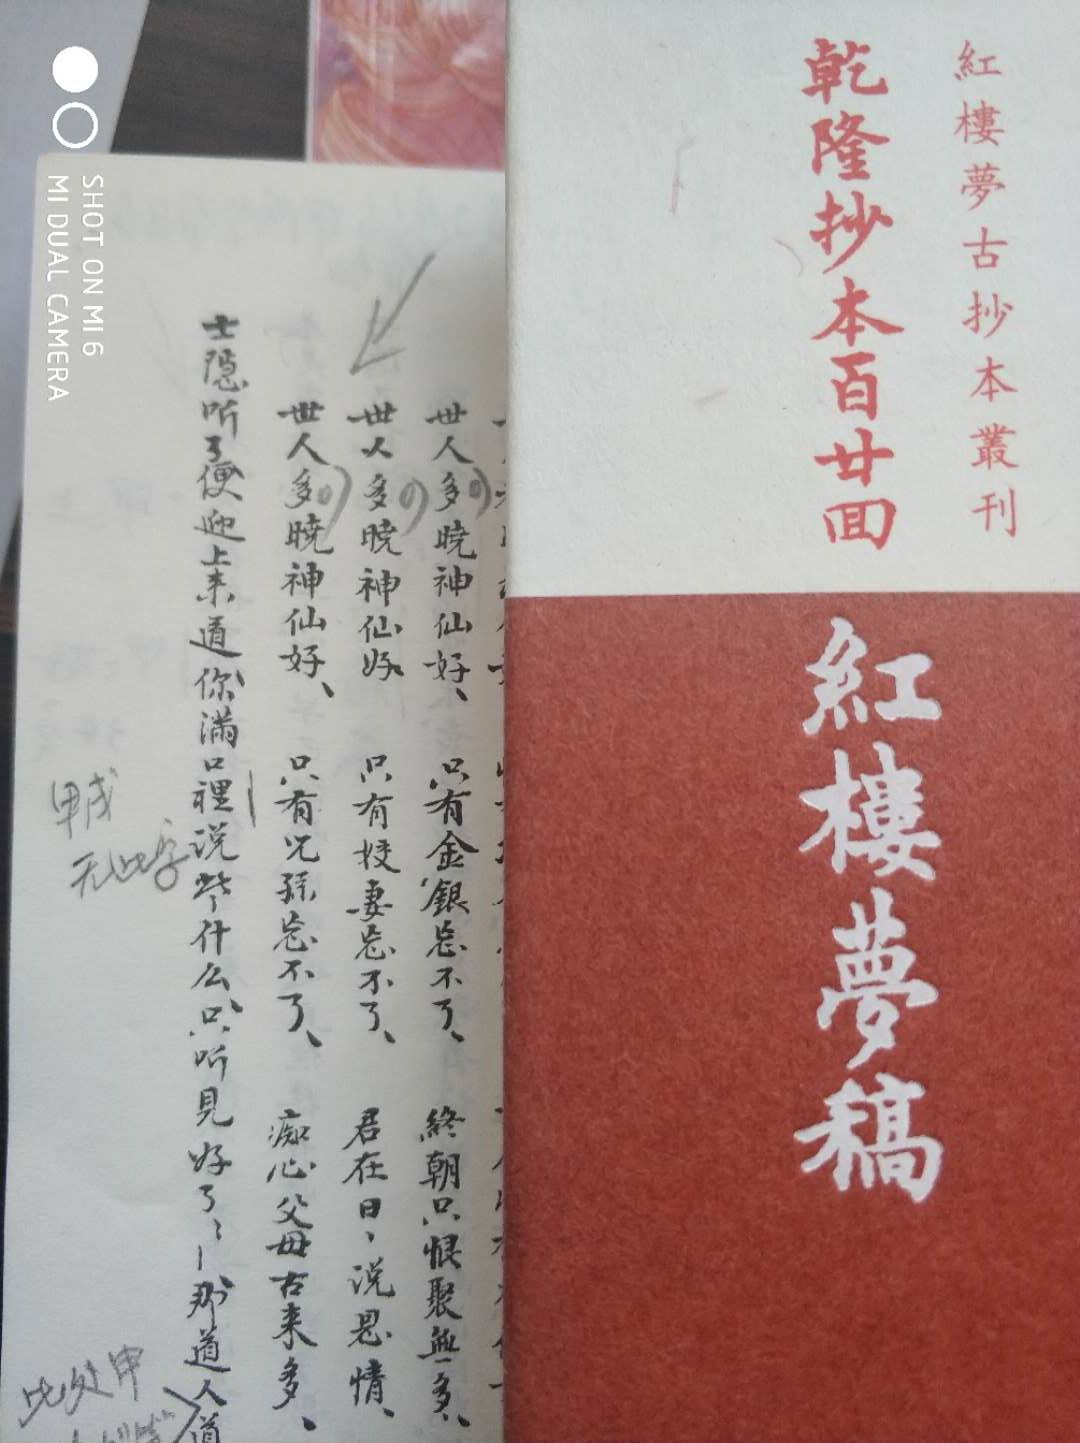 紅樓夢古抄本叢刊
乾隆抄本百廿回
紅樓夢稿
世人多曉神仙好、只有金銀忘不了、終朝只恨聚無多、
世人多曉神仙好 只有姣妻忘不了、君在日、說恩情、
世人多曉神仙好、只有兒孫忘不了、痴心父母古来多、
士隱听了便迎上来道你滿口裡说些什么只听見好了、那道人道
甲戌
无此字
此处甲
SHOT ON MI 6
MI DUAL CAMERA